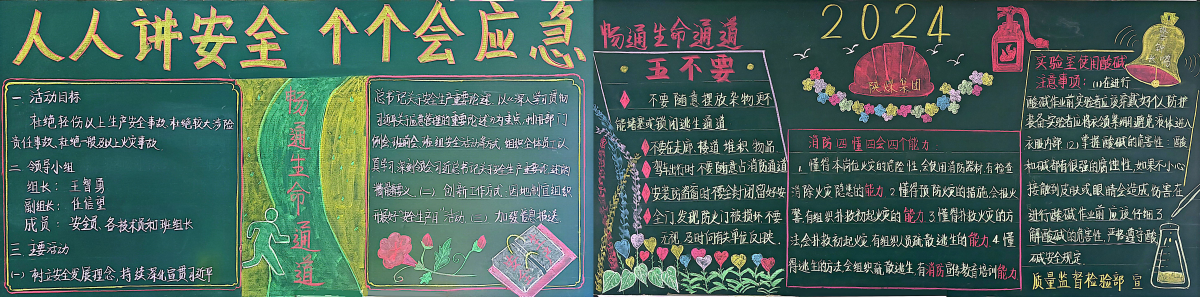 人人讲安全 个个会应急
一 活动目标
杜绝轻伤以上生产安全事故 杜绝较大涉险
责任事故、杜绝一般及以上火灾事故
二 领导小组
组长： 王智勇
副组长： 任信望
成员： 安全员、各技术员和班组长
三 主要活动
(一) 树立安全发展理念，持续深化宣贯习近平
畅通生命通道
总书记关于安全生产重要论述，以《深入学习贯彻
习近平关于应急管理的重要论述》为重点，利用部门
例会 班前会 班组安全活动考试，组织全体员工认
真学习，深刻领会习总书记关于安全生产重要论述的
精髓要义、(二) 创新工作方式 因地制宜组织
开展好"安全生产月"活动 (三) 加强信息报送
畅通生命通道
五不要
不要随意摆放杂物更不
能堵塞或锁闭逃生通道
不要在走廊、楼道 堆积 物品
驾车出行时不要随意占消防通道
安装防盗窗时不要全封闭留好安
全门 发现防火门被损坏不要
无视 及时向有关单位反映
2024
陕煤集团
消防四懂四会四个能力
1. 懂得本岗位火灾的危险性、会使用消防器材、有检查
消除火灾隐患的能力 2 懂得预防火灾的措施、会报火
警、有组织扑救初起火灾的能力 3 懂得扑救火灾的方
法会扑救初起火灾 有组织人员疏散逃生的能力 4 懂
得逃生的方法会组织疏散逃生 有消防宣传教育培训能力
实验室使用酸碱
注意事项： (1)在进行
酸碱作业前实验者应该穿戴好个人防护
装备 实验者应将衣领、罩帽、避免液体进入
衣服内部 (2) 掌握酸碱的危害性：酸
和碱都有很强的腐蚀性 如果不小心
接触到皮肤或眼睛会造成伤害 在
进行酸碱作业前应该仔细了
解酸碱的危害性，严格遵守酸
碱安全规定
质量监督检验部 宣